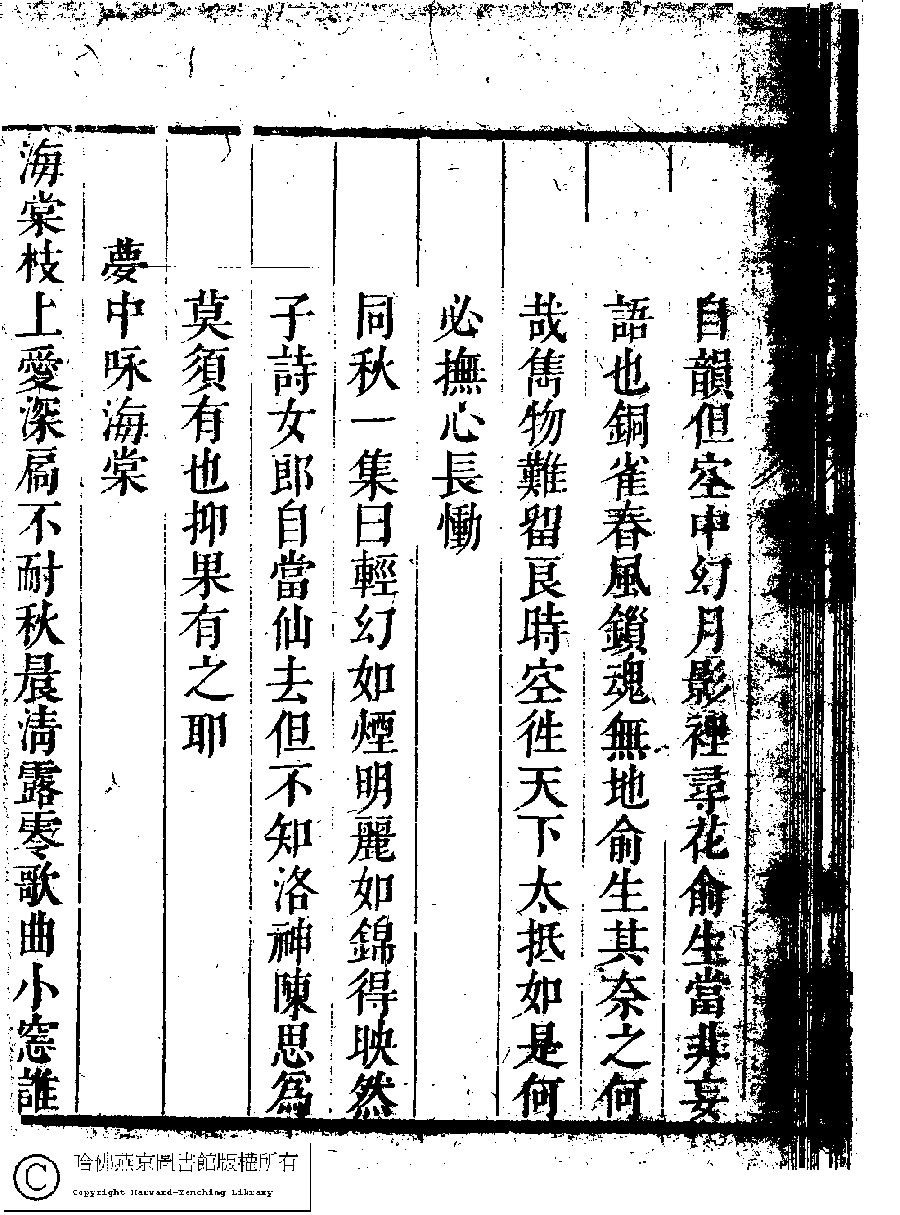 自韻但空中幻月影裡尋花俞生當非妄
語也銅雀春風鎖魂無地俞生其奈之何
哉雋物難留良時空徃天下大抵如是何
必撫心長慟
同秋一集曰輕幻如煙明麗如錦得映然
子詩女郎自當仙去但不知洛神陳思爲
莫須有也抑果有之耶
夢中咏海棠
海棠枝上愛深扃不耐秋晨淸露零歌曲小窓誰
哈佛燕京圖書館版權所有
Copyright Harvard-Yenching Library